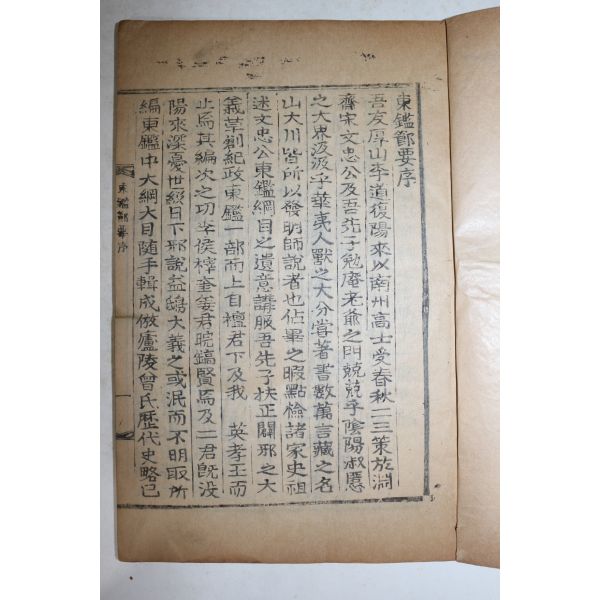 東鑑節要序
吾友厚山李道復陽來以南州高士受春秋二三策於淵
齋宋文忠公及吾先子勉庵老爺之門兢兢乎陰陽淑慝
之大界汲汲乎華夷人獸之大分嘗著書數萬言藏之名
山大川皆所以發明師說者也佔畢之暇點檢諸家史祖
述文忠公東鑑綱目之遺意講服吾先子扶正闢邪之大
義草創紀政東鑑一部而上自檀君下及我 英孝王而
止焉其編次之功李侯梓奎姜君晥鎬賢焉及二君旣沒
陽來深憂世級日下邪說益鴟大義之或泯而不明取所
編東鑑中大綱大目隨手輯成倣廬陵曾氏歷代史略已
東鑑節要序
一